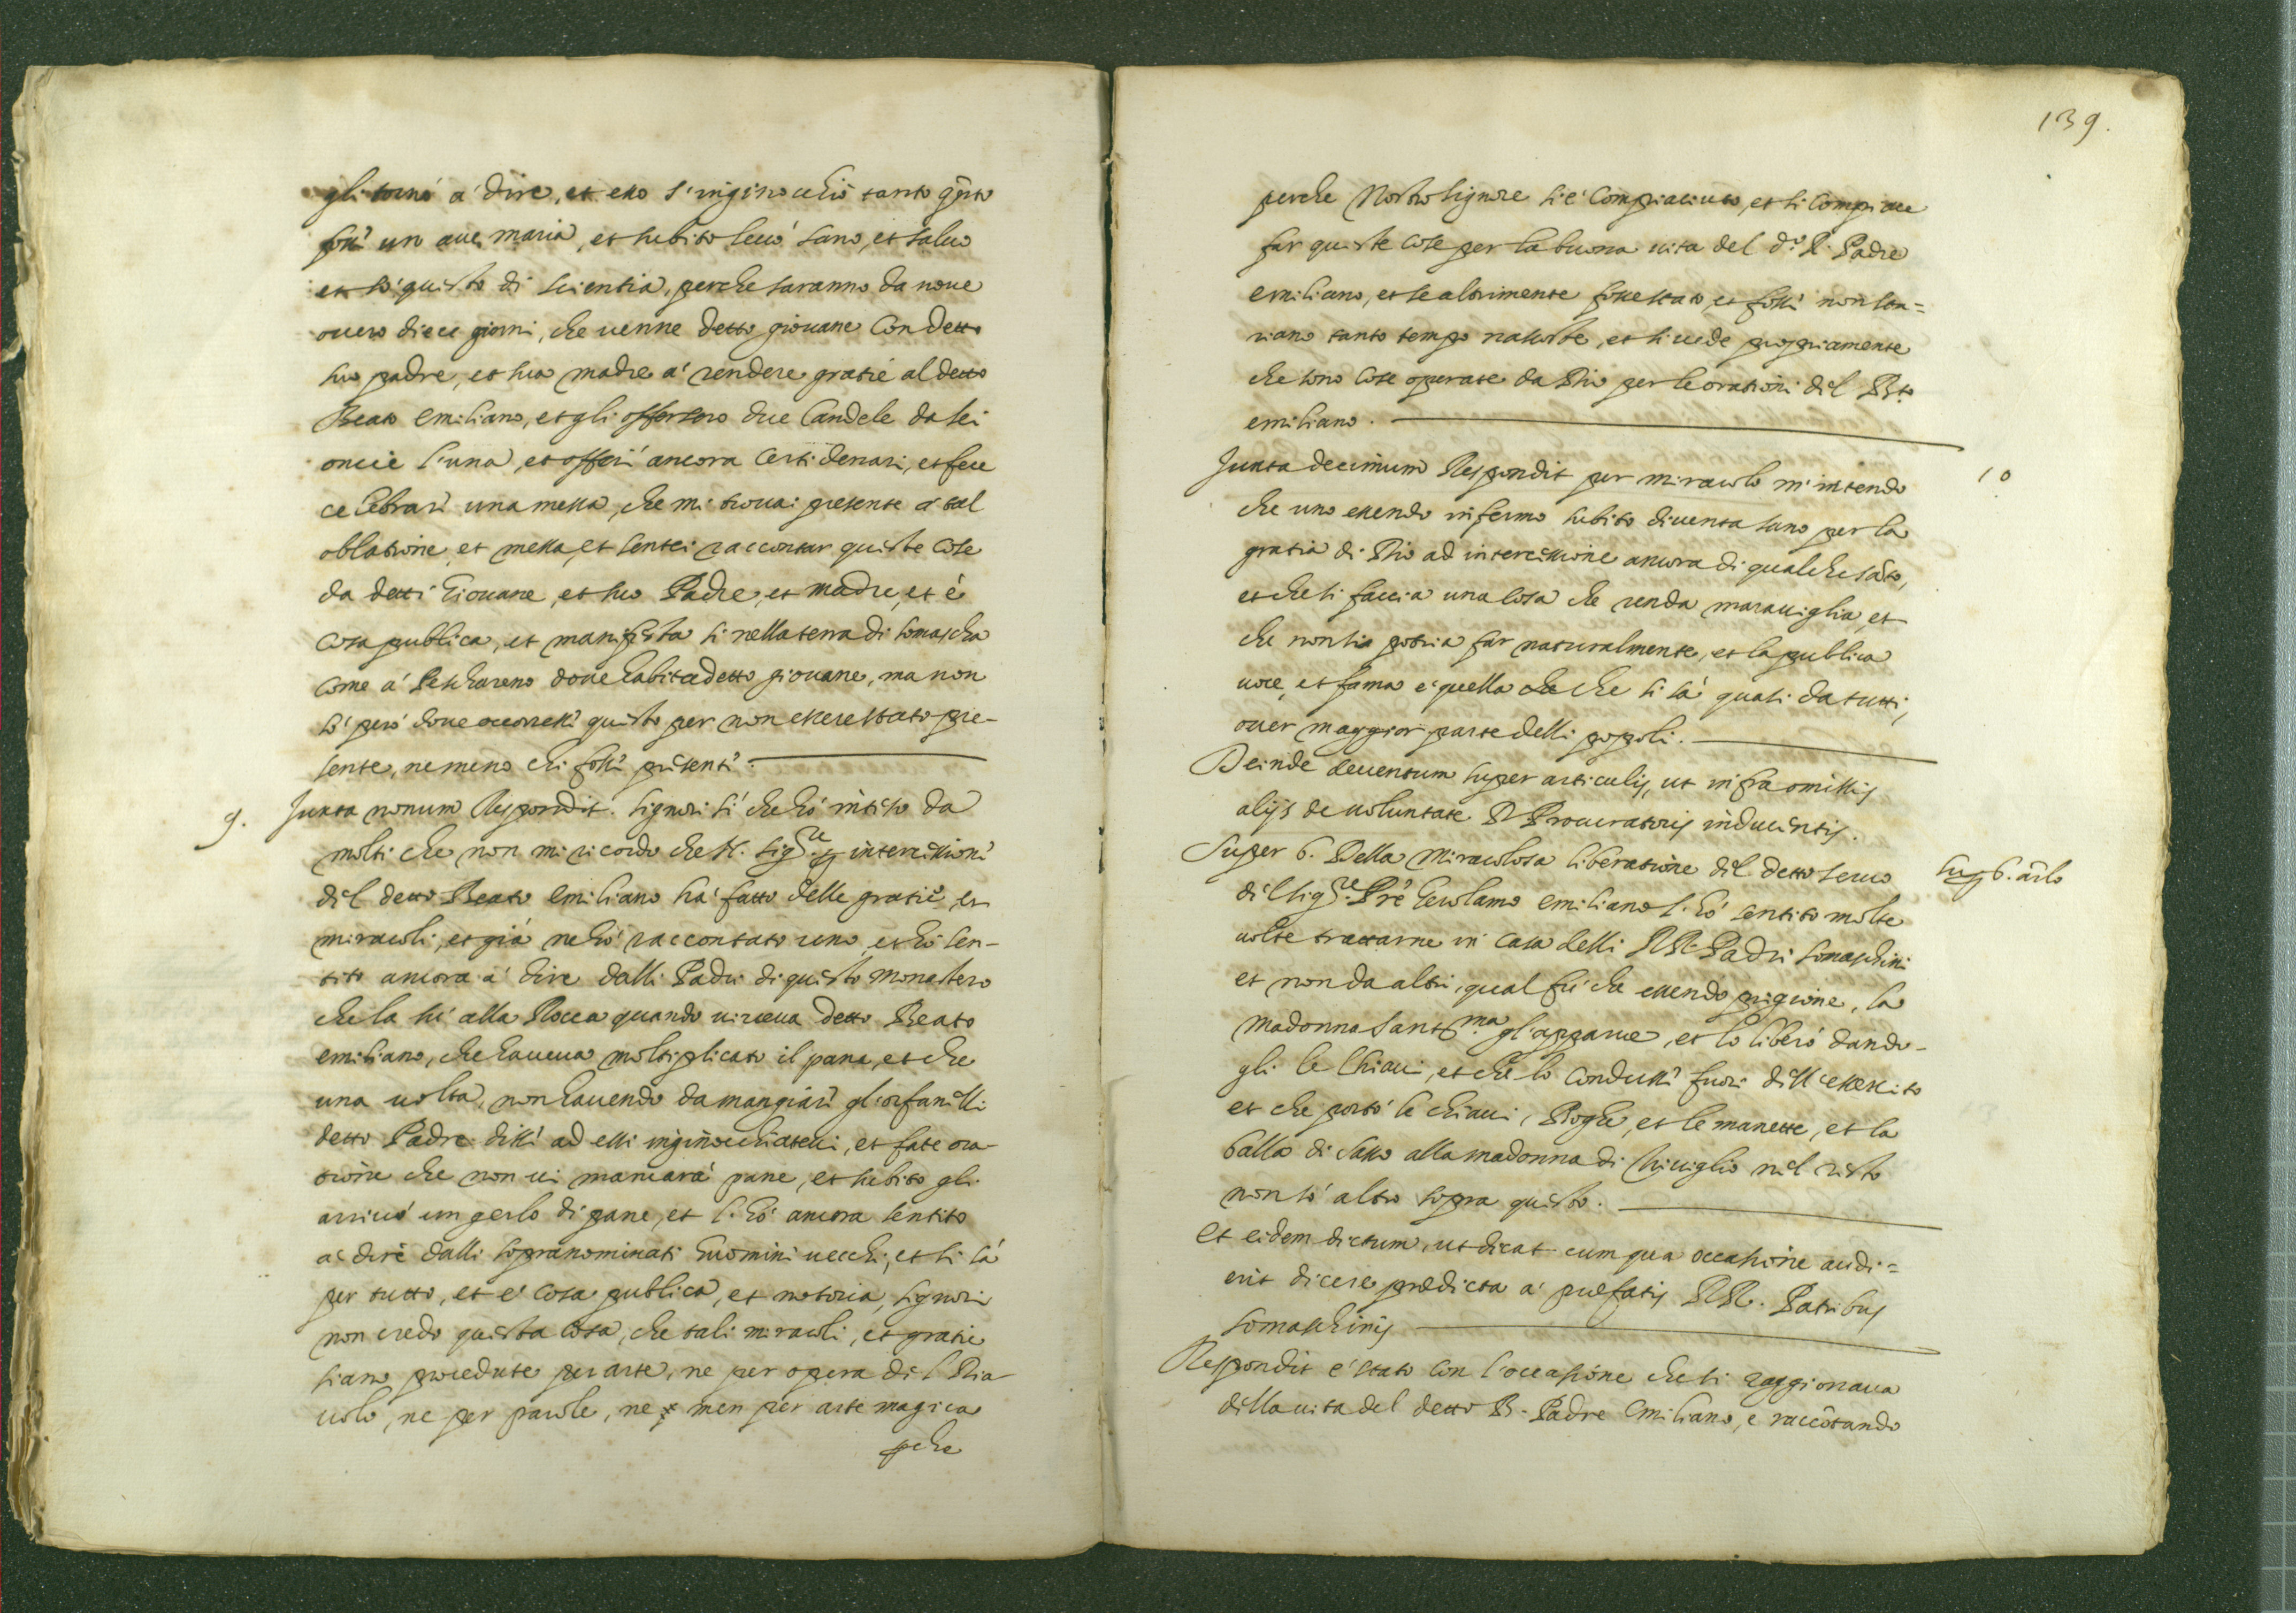 gli tornò à dire, et esso s'inginocchiò tanto q̃nto
fossi un aue maria, et subito leuò sano, et saluo
et sò questo di scientia, perche saranno da noue
ouero diece giorni, che uenne detto giouane con detto
suo padre, et sua madre a' rendere gratie al detto
Beato Emiliano, et gli offersero due Candele da sei
oncie l'una, et offerì ancora certi denari, et fece
celebrari una messa, che mi trouai presente à tal
oblatione et messa, et sentei raccontar queste cose
da detti Giouane, et suo Padre, et madre, et è
cosa publica, et manifesta sì nella terra di somascha
come à Peschareno doue habita detto giouane, ma non
sò però doue occorressi questo per non essere stato pre-
sente, ne meno chi fossi presenti.
9. Juxta nonum Respondit. signori sì che hò inteso da
molti che non mi ricordo che N. Sigre. p intercissioni
del detto Beato Emiliano hà fatto delle gratie, et
miracoli, et già ne hò raccontato uno, et hò sen-
tito ancora à dire dalli Padri di questo monastero
che la sù alla Rocca quando uiueua detto Beato
emiliano, che haueua moltiplicato il pane, et che
una uolta, non hauendo da mangiari gl'orfanelli
detto Padre dissi ad essi inginocchiateui, et fate ora-
tione che non ui mancarà pane, et subito gli
arriuò un gerlo di pane, et l'hò ancora sentito
a dire dalli sopranominati huomini uecchi, et si sà
per tutto, et è cosa publica, et notoria, signori
non credo questa cosa, che tali miracoli, et gratie
siano procedute per arte, ne per opera del Dia-
uolo, ne per parole, ne men per arte magica
pche
139.
perche Nostro signore si è compiaciuto, et si compiace
far queste cose per la buona uita del do. R. Padre
emiliano, et se altrimente fosse stato, et fossi non sta-
riano tanto tempo nascoste, et si uede propriamente
che sono cose operate da Dio per le orationi del Bto
emiliano.
Juxta decimum Respondit per miracolo m'intendo
10
che uno essendo infermo subito diuenta sano per la
gratia di Dio ad intercissione ancora di qualche sãto,
et che si faccia una cosa che renda marauiglia, et
che non si potria far naturalmente, et la publica
uoce, et fama è quella che che si sà quasi da tutti,
ouer maggior parte delli popoli.
Deinde deuentum super articulis, ut infra omissis
alijs de uoluntate D Procuratoris inducentis.
Super 6. Della miracolosa liberatione del detto seruo
sup 6. arlo
del Sigre. Pre Gerolamo emiliano l'hò sentito molte
uolte trattarne in casa delli RR. Padri somaschini
et non da altri, qual fù che essendo prigione, la
madonna santma gl'apparue, et lo liberò dando-
gli le chiaui, et che lo condussi fuori dell'essercito
et che portò le chiaui, Boghe, et le manette, et la
balla di sasso alla madonna di Treuiglio nel resto
non sò altro sopra questo.
Et eidem dictum, ut dicat cum qua occasione audi=
erit dicere prædicta a' præfatis RR. Patribus
somaschinis
Respondit è stato con l'occasione che si raggionaua
della uita del detto B. Padre Emiliano, e raccõtando